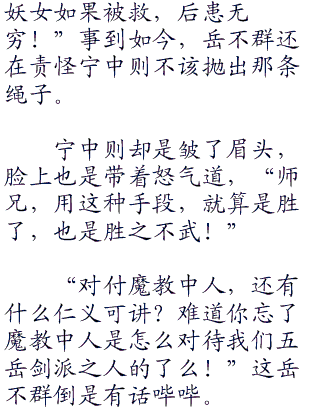 妖女如果被救，后患无
穷！”事到如今，岳不群还
在责怪宁中则不该抛出那条
绳子。
宁中则却是皱了眉头，
脸上也是带着怒气道，“师
兄，用这种手段，就算是胜
了，也是胜之不武！”
“对付魔教中人，还有
什么仁义可讲？难道你忘了
魔教中人是怎么对待我们五
岳剑派之人的了么！”这岳
不群倒是有话哔哔。